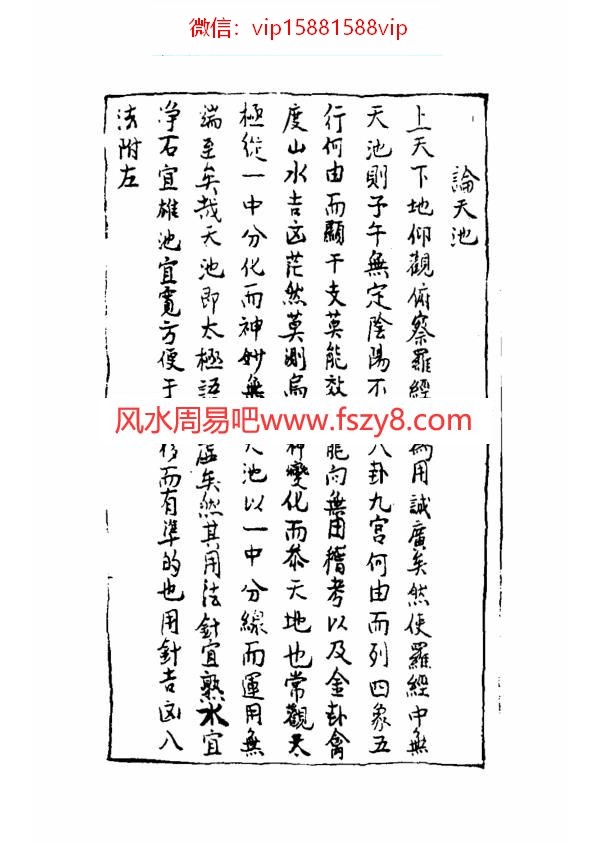 微信：vip15881588vip
論天池
上天下地仰觀俯察羅經為用誠廣矣然使羅經中無
天池則子午無定陰陽不八卦九宮何由而列四象五
行何由而顯干支莫能效能向無由稽考以及金卦禽
度山水吉凶茫然莫測烏神變化而叅天地也常觀太
極從一中分化而神妙無天池以一中分線而運用無
端至矣哉天池即太極語虛矣然其用法針宜熟水宜
净石宜雄池宜寬方便于移而有準的也用針吉凶八
法附左
风水周易吧www.fszy8.com